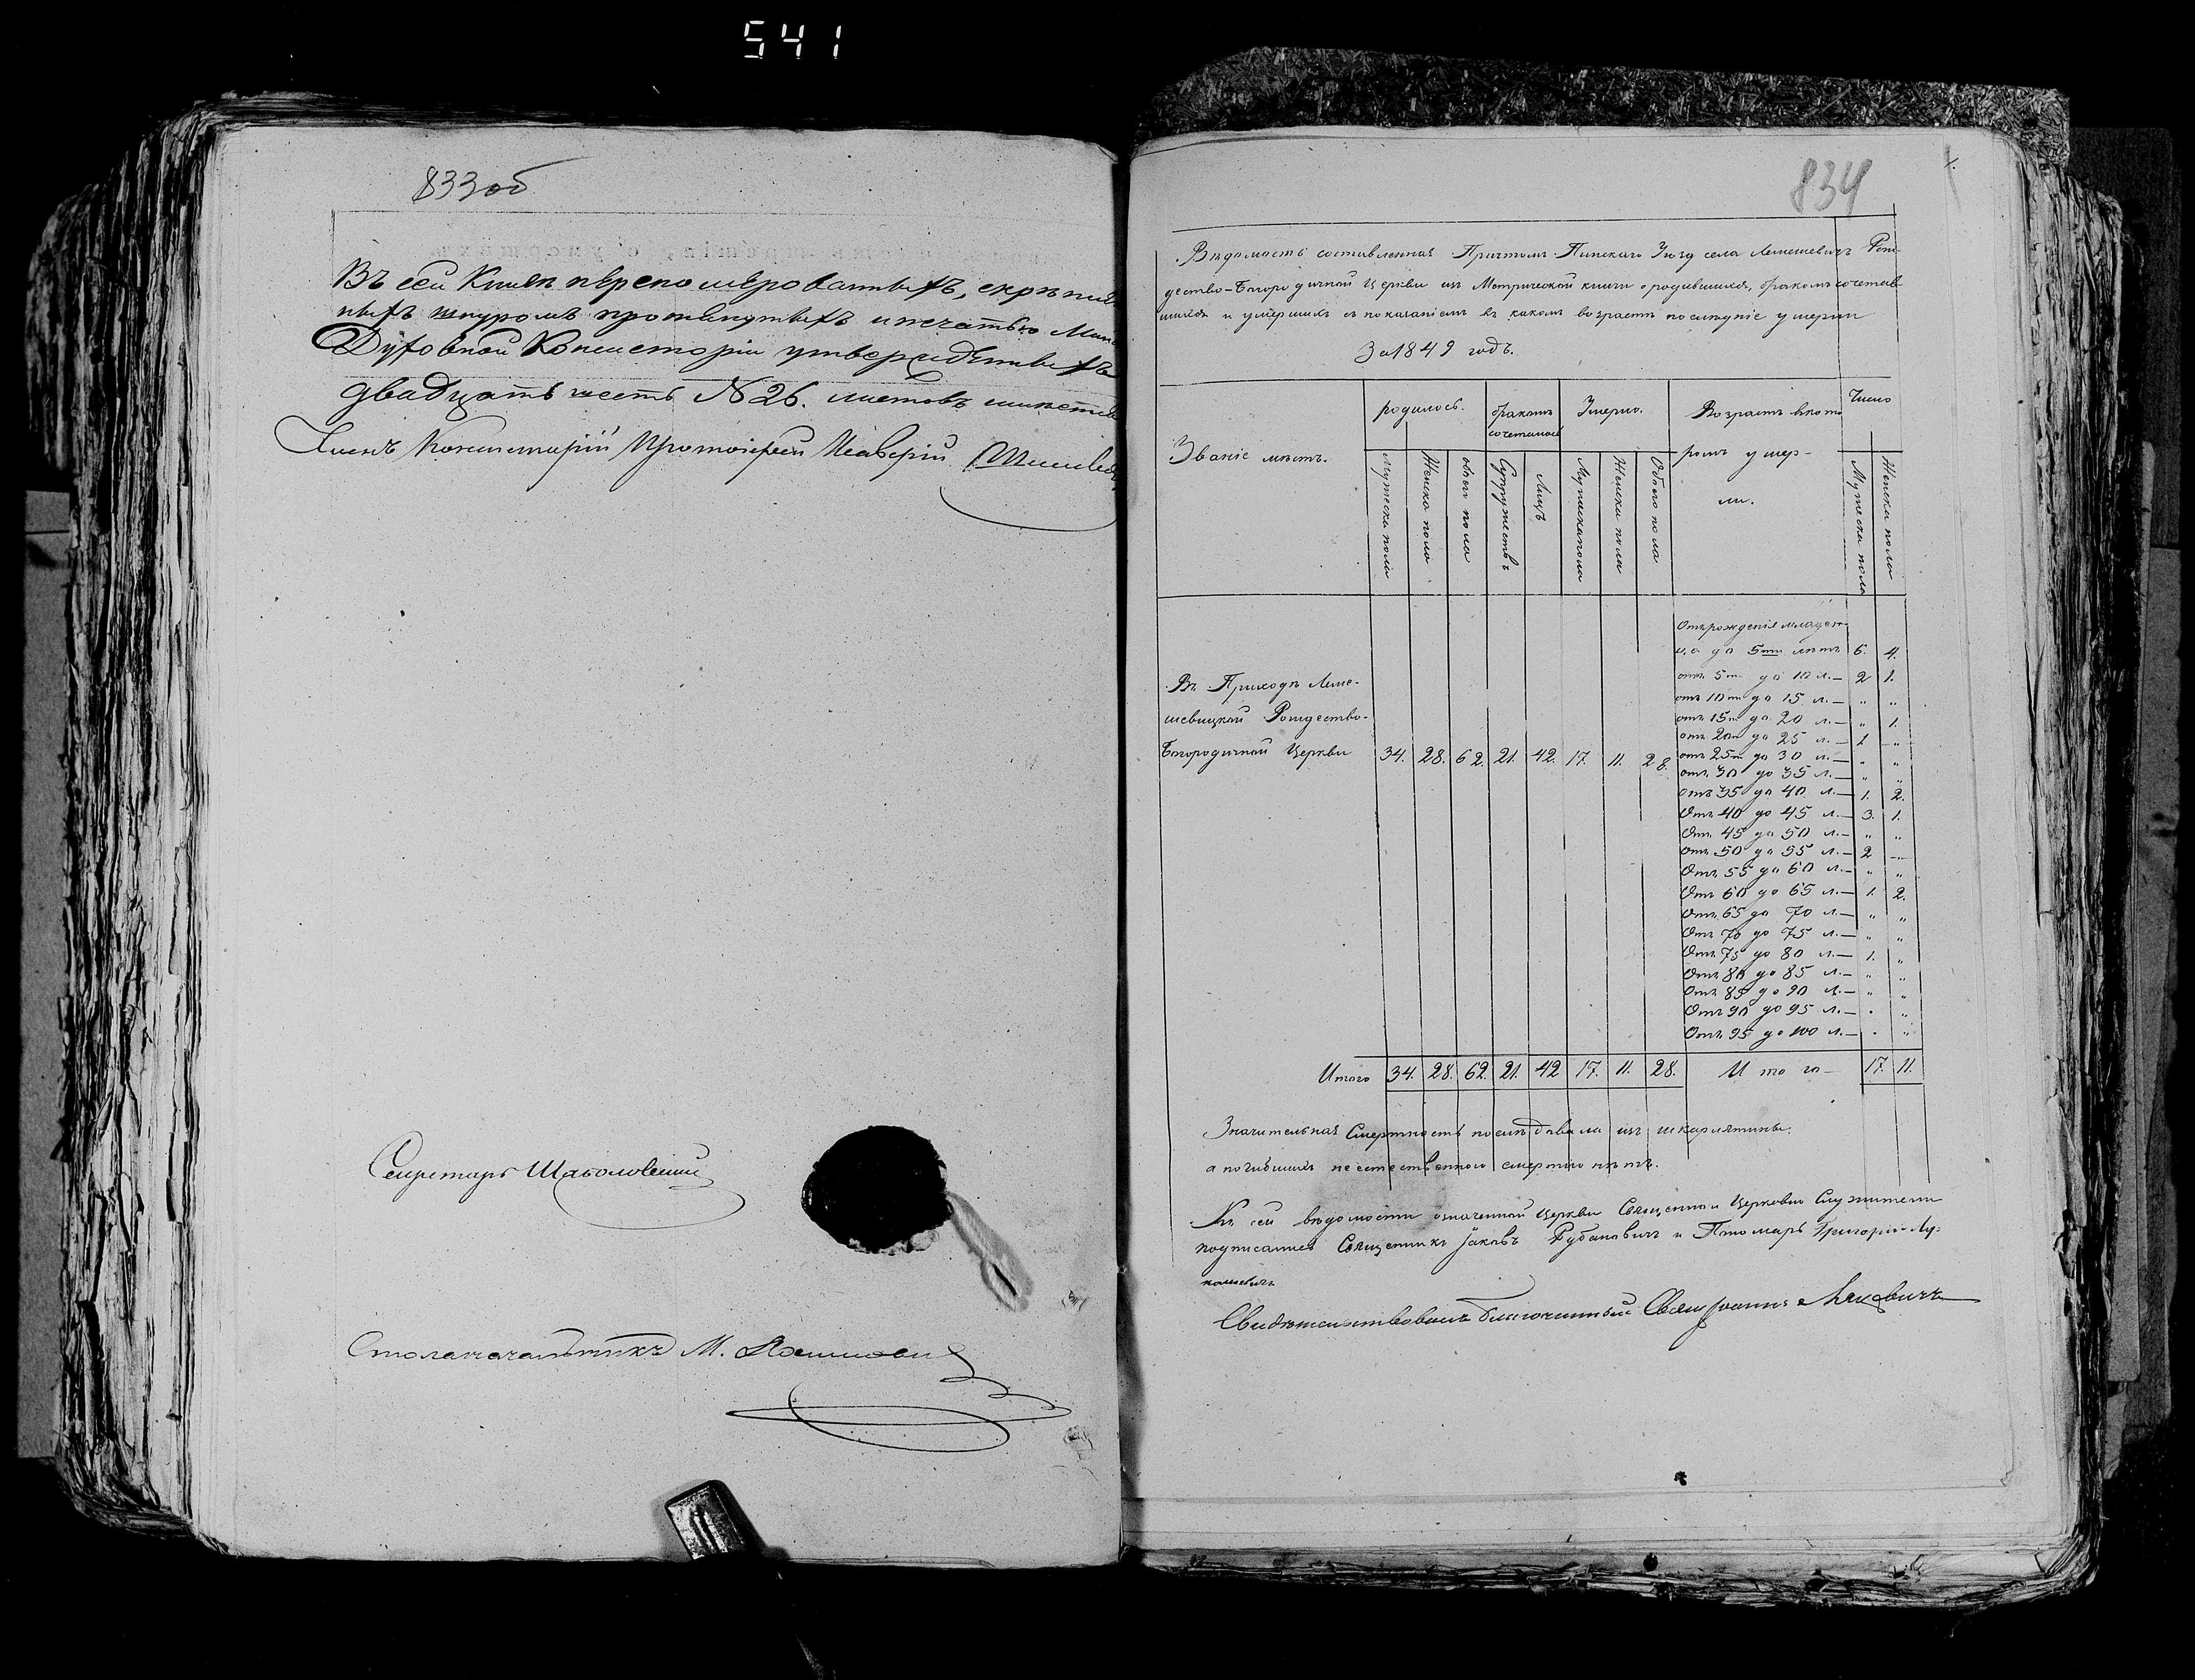 541
833 об
Въ сей Книгѣ перено мерованныхъ, скрѣплен
ныхъ шнуромъ протянутыхъ и печатью Минс
Духовной Консисторіи утвержденныхъ
двадцать шесть N 26. листовъ
Членъ Консисторіи Протоіерей
Секретарь
Столоначальникъ М.
834
Вѣдомость составленная Причтомъ Пинскаго Уѣзд села Лемешевичъ Рож
дество-Богородичной Церкви изъ Метрической книги о родившихся, бракомъ сочетав
шихся и умершихъ съ показаніемъ въ какомъ возрастѣ послѣдніе умерли
За 1849 годъ.
Званіе мѣстъ.
родилось.
бракомъ сочеталось
Умерло.
Возрастъ въ кото
ромъ умер-
ли.
Число
Мужеска пола
Женска пола
обоего пола
Супружествъ
Лицъ
Мужеска пола
Женска пола
Обоего пола
Мужеска пола
Женска пола
Въ Приходѣ Леме-
шевицкой Рождество-
Богородичной Церкви 34. 28. 62. 21. 42. 17. 11. 28.
Отъ рожденія младен-
ца до 5ти лѣтъ 6. 4.
отъ 5ти до 10 л.— 2 1.
отъ 10ти до 15 л.— " "
отъ 15ти до 20 л.— " 1.
отъ 20ти до 25 л.— 1 "
отъ 25ти до 30 л.— " "
отъ 30 до 35 л.— " "
Отъ 35 до 40 л.— 1. 2.
Отъ 40 до 45 л.— 3. 1.
Отъ 45 до 50 л.— " "
Отъ 50 до 55 л.— 2 "
Отъ 55 до 60 л.— " "
Отъ 60 до 65 л.— 1. 2.
Отъ 65 до 70 л.— " "
Отъ 70 до 75 л.— " "
Отъ 75 до 80 л.— 1. "
Отъ 80 до 85 л.— " "
Отъ 85 до 90 л.— " "
Отъ 90 до 95 л.— " "
Отъ 95 до 100 л.— " "
Итого 34. 28. 62. 21. 42 17. 11. 28. Итого— 17. 11.
Значительная Смертность послѣдовала изъ шкарлятины.
а погибшихъ неестественною смертію нѣтъ.
Къ сей вѣдомости означенной Церкви Священно и Церковно Служители
подписались Священникъ Іаковъ Рубановичъ и Пономарь Григорій Лу-
кашевичъ
Свидѣтельствовалъ благочинный Свящ Іоаннъ